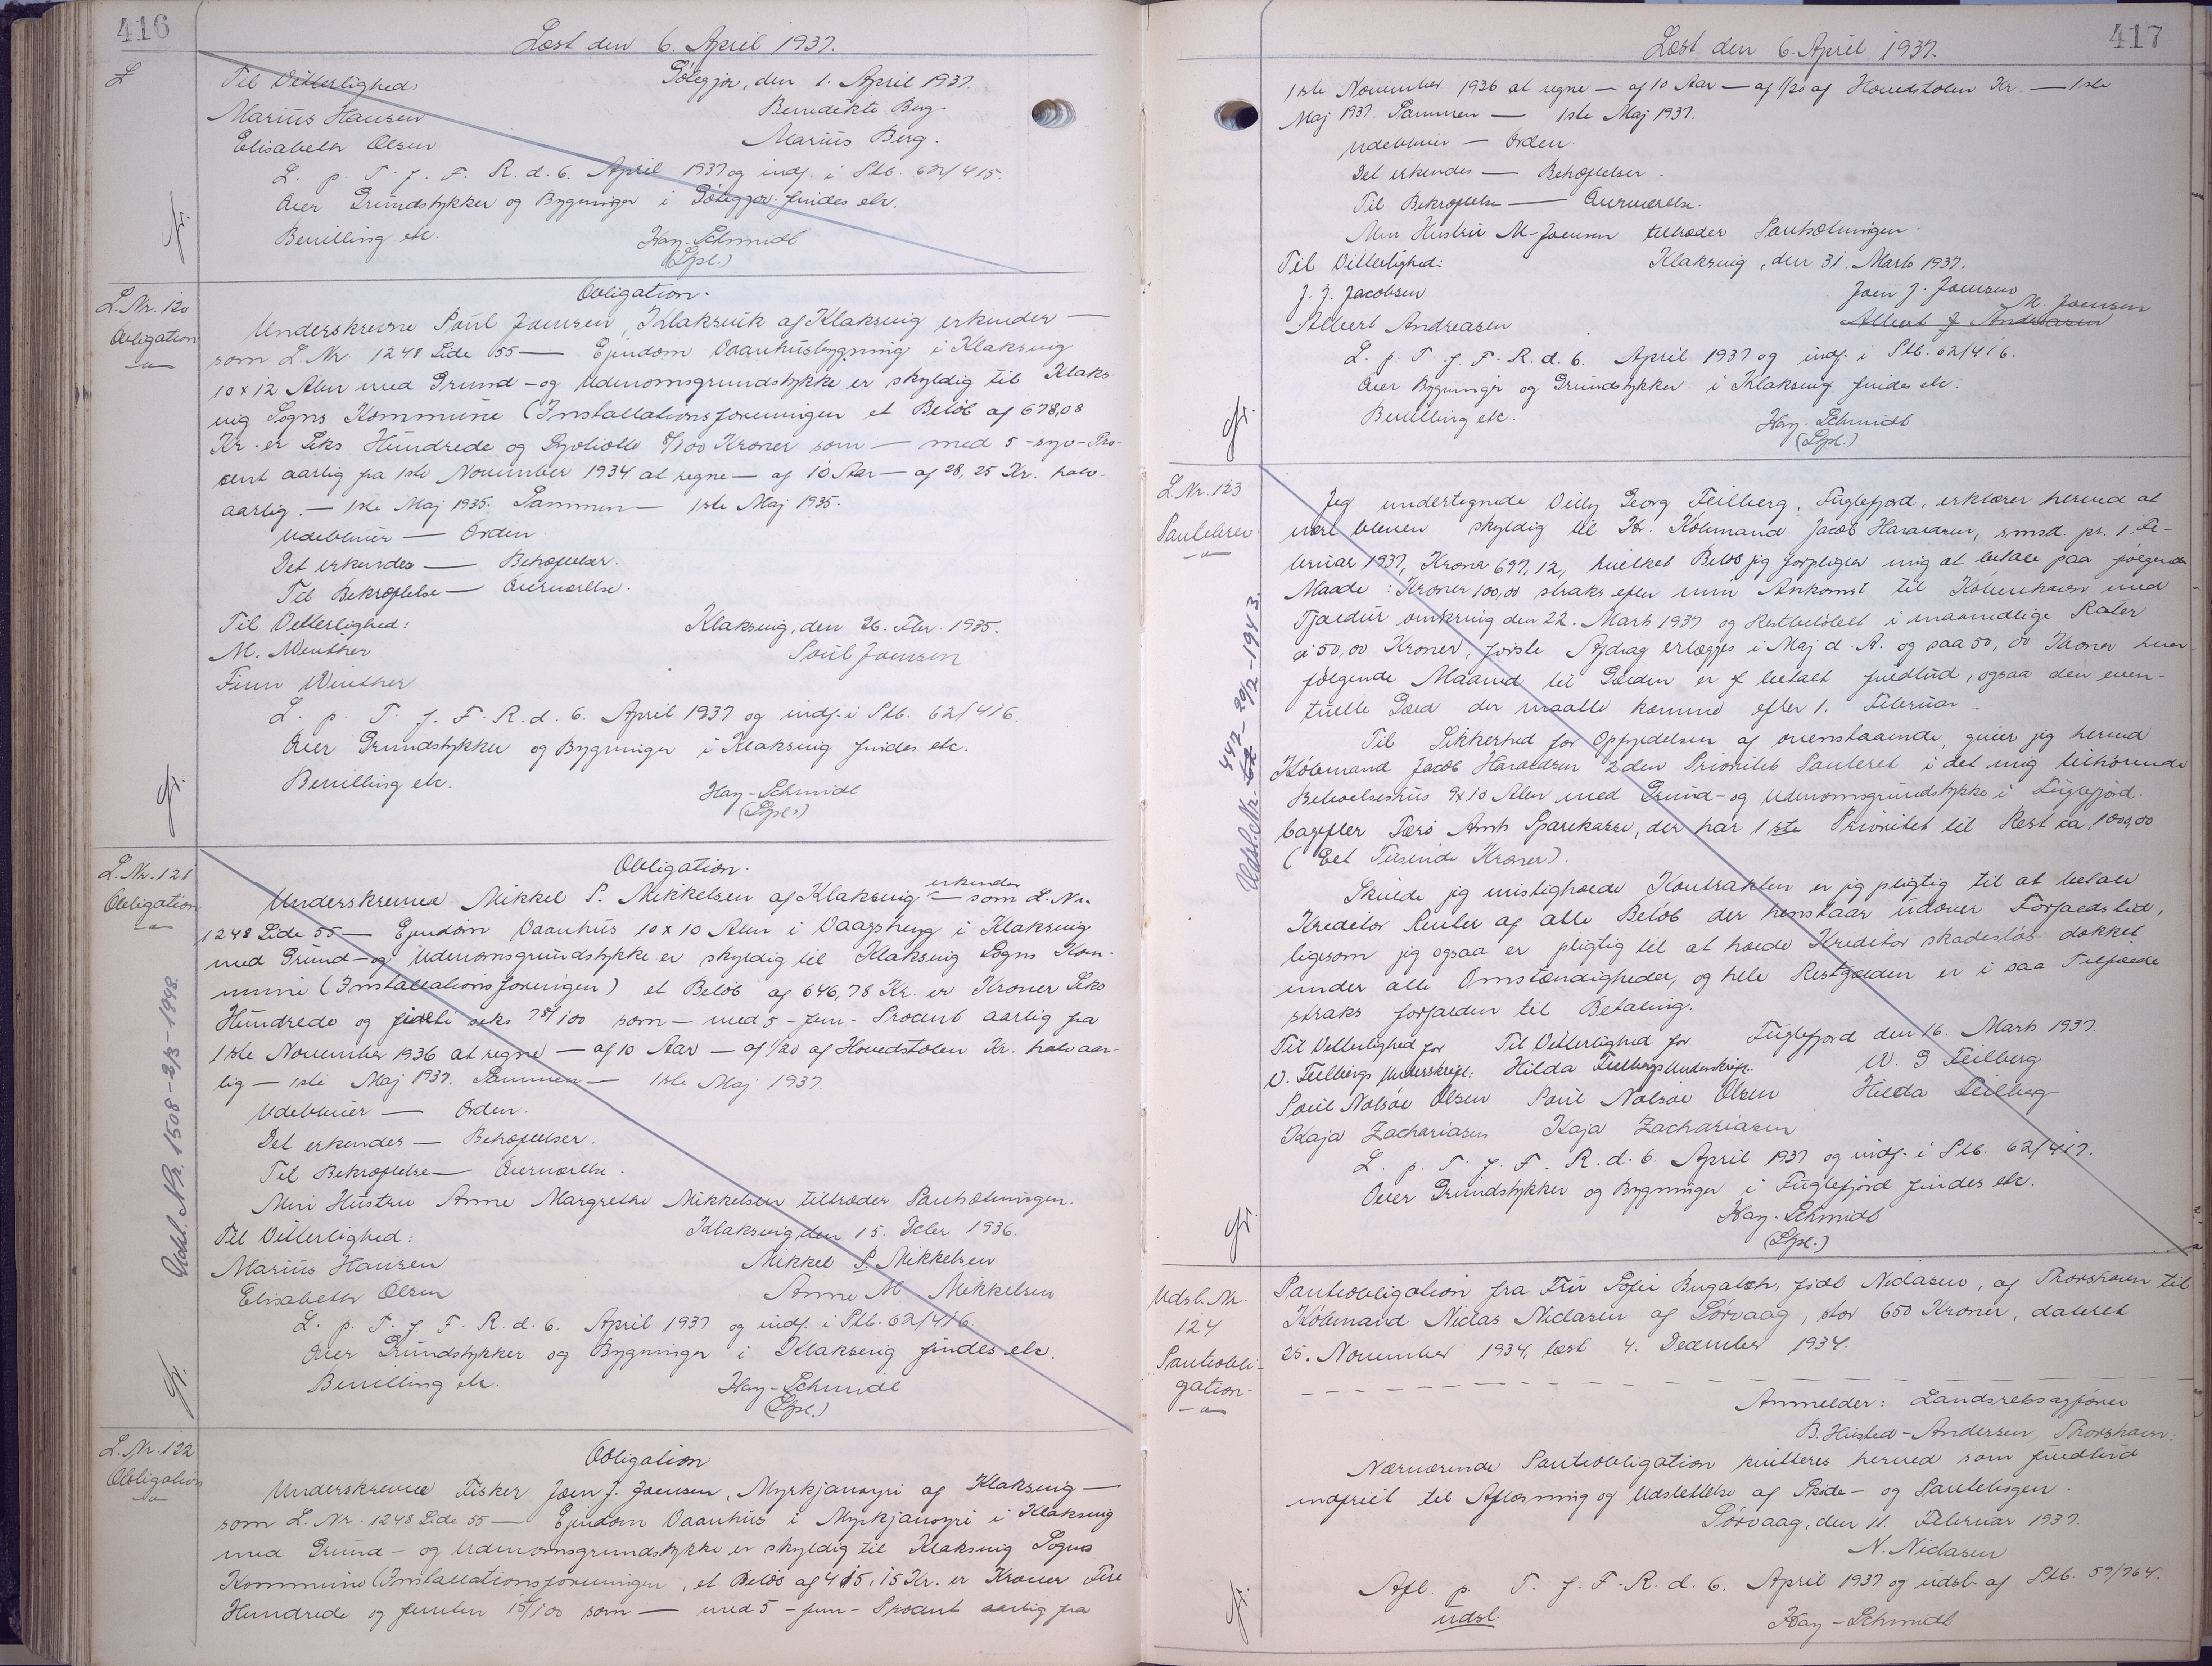 416
Læst den 6. April 1937.
L
Til Vitterlighed: Gøtegjov, den 1. April 1937.
Marius Hansen Benedikte Berg.
Elisabeth Olsen Marius Berg.
L. p. T. f. F. R. d. 6. April 1937 og indf. i Ptb. 62/415.
Over Grundstykker og Bygninger i Gøtegjov findes etc.
Bevilling etc. Hay-Schmidt
(Gpl.)
L. Nr. 120
Obligation
Obligation.
Underskrevne Poul Joensen, Klaksvik af Klaksvig erkender —
som L. Nr. 1248 Side 55 — Ejendom Vaanhusbygning i Klaksvig
10 x 12 Alen med Grund- og Udenomsgrundstykke er skyldig til Klaks-
vig Sogns Kommune (Installationsforeningen et Beløb af 678,08
Kr. er Seks Hundrede og Syvtiotte 8/100 Kroner som — med 5 - syv - Pro-
cent aarlig fra 1ste November 1934 at regne — af 10 Aar — af 28,25 Kr. halv-
aarlig. — 1ste Maj 1935. Sammen — 1ste Maj 1935.
Udebliver — Orden.
Det erkendes — Behæftelser.
Til Bekræftelse — Overværelse.
Til Vitterlighed: Klaksvig, den 26. Febr. 1935.
M. Winther Poul Joensen
Finn Winther
L. p. T. f. F. R. d. 6. April 1937 og indf. i Ptb. 62/416.
Over Grundstykker og Bygninger i Klaksvig findes etc.
Bevilling etc. Hay-Schmidt
(Gpl.)
L. Nr. 121
Obligation
Udsl. N Nr. 1508 - 2/3 - 1948.
Obligation.
Underskrevne Mikkel P. Mikkelsen af Klaksvig erkender — som L. Nr.
1248 Side 55 — Ejendom Vaanhus 10 x 10 Alen i Vaagsheyg i Klaksvig
med Grund- og Udenomsgrundstykke er skyldig til Klaksvig Sogns Kom-
mune (Installationsforeningen) et Beløb af 646,78 Kr. er Kroner Seks
Hundrede og firti seks 78/100 som — med 5 - fem - Procent aarlig fra
1ste November 1936 at regne — af 10 Aar — af 1/20 af Hovedstolen Kr. halvaar-
lig — 1ste Maj 1937. Sammen — 1ste Maj 1937.
Udebliver — Orden.
Det erkendes — Behæftelser.
Til Bekræftelse — Overværelse.
Min Hustru Anne Margrethe Mikkelsen tiltræder Pantsætningen.
Til Vitterlighed: Klaksvig den 15. Dcbr. 1936.
Marius Hansen Mikkel P. Mikkelsen
Elisabeth Olsen Anne M Mikkelsen
L. p. T. f. F. R. d. 6. April 1937 og indf. i Ptb. 62/416.
Over Grundstykker og Bygninger i Klaksvig findes etc.
Bevilling etc. Hay-Schmidt
(Gpl.)
L. Nr. 122
Obligation
Obligation
Underskrevne Fisker Joen J. Joensen, Myrkjanoyri af Klaksvig —
som L. Nr. 1248 Side 55 — Ejendom Vaanhus i Myrkjanoyri i Klaksvig
med Grund- og Udenomsgrundstykke er skyldig til Klaksvig Sogns
Kommune (Installationsforeningen, et Beløb af 415,15 Kr. er Kroner Fire
Hundrede og femten 15/100 som — med 5 - fem - Procent aarlig fra
417
Læst den 6. April 1937.
1ste November 1936 at regne — af 10 Aar — af 1/20 af Hovedstolen Kr. — 1ste
Maj 1937. Sammen — 1ste Maj 1937.
Udebliver — Orden.
Det erkendes — Behæftelser.
Til Bekræftelse — Overværelse.
Min Hustru M-Joensen tiltræder Pantsætningen.
Til Vitterlighed: Klaksvig, den 31. Marts 1937.
J. J. Jacobsen Joen J. Joensen
Albert Andreasen M. Joensen
Albert J Andreasen
L. p. T. f. F. R. d. 6. April 1937 og indf. i Ptb. 62/416.
Over Bygninger og Grundstykker i Klaksvig findes etc.
Bevilling etc. Hay-Schmidt
(Gpl.)
L. Nr. 123
Pantebrev
Udsl. N. Nr. 447 - 20/2 - 1943.
Jeg undertegnede Villy Georg Feilberg, Fuglefjord, erklærer herved at
være bleven skyldig til Hr. Købmand Jacob Haraldsen, smsd. pr. 1 Fe-
bruar 1937, Kroner 697,12, hvilket Beløb jeg forpligter mig at betale paa følgende
Maade: Kroner 100,00 straks efter min Ankomst til København med
Tjaldur omkring den 22. Marts 1937 og Restbeløbet i maanedlige Rater
à 50,00 Kroner, første Afdrag erlægges i Maj d. A. og saa 50,00 Kroner hver
følgende Maaned til Gælden er f betalt fuldtud, ogsaa den even-
tuelle Gæld der maatte komme efter 1. Februar.
Til Sikkerhed for Opfyldelsen af ovenstaaende, giver jeg herved
Købmand Jacob Haraldsen 2den Prioritet Panteret i det mig tilhørende
Beboelseshus 9x10 Alen med Grund- og Udenomsgrundstykke i Fuglefjord.
bagefter Færø Amts Sparekasse, der har 1ste Prioritet til Rest ca. 1000,00
(Eet Tusinde Kroner).
Skulde jeg misligholde Kontrakten er jeg pligtig til at betale
Kreditor Renter af alle Beløb der henstaar udover Forfaldstid,
ligesom jeg ogsaa er pligtig til at holde Kreditor skadesløs dækket
under alle Omstændigheder, og hele Restgælden er i saa Tilfælde
straks forfalden til Betaling.
Til Vitterlighed for Til Vitterlighed for Fuglefjord den 16. Marts 1937.
V. Feilbergs Underskrift: Hilda Feilbergs Underskrift. V. G. Feilberg
Poul Nolsøe Olsen Poul Nolsøe Olsen Hilda Feilberg
Kaja Zachariasen Kaja Zachariasen
L. p. T. f. F. R. d. 6. April 1937 og indf. i Ptb. 62/417.
Over Grundstykker og Bygninger i Fuglefjord findes etc.
Hay-Schmidt
(Gpl.)
Udsl. Nr.
124
Panteobli-
gation.
Panteobligation fra Fru Sofie Bugalch, født Niclasen, af Thorshavn til
Købmand Niclas Niclasen af Sørvaag, stor 650 Kroner, dateret
25. November 1934, læst 4. December 1934.
Anmelder: Landsretssagfører
B. Husted-Andersen, Thorshavn.
Nærværende Panteobligation kvitteres herved som fuldtud
indfriet til Aflæsning og Udslettelse af Skøde- og Pantebogen.
Sørvaag, den 11. Februar 1937.
N. Niclasen
Afl. p. T. f. F. R. d. 6. April 1937 og udsl. af Ptb. 59/764.
udsl. Hay-Schmidt